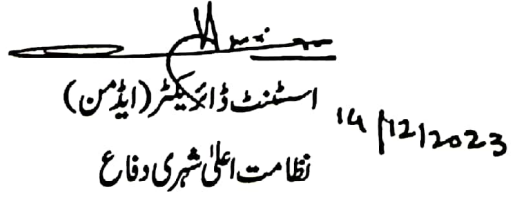 اسسٹنٹ ڈائریکٹر (ایڈمن)
14/12/2023
نظامت اعلیٰ شہری دفاع